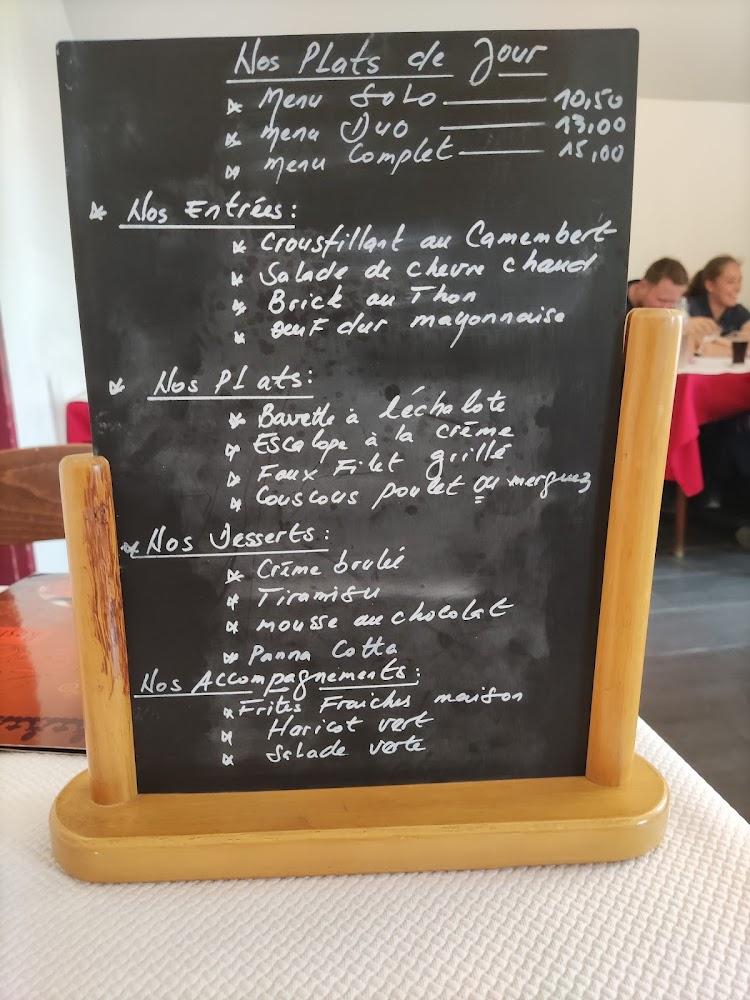 Nos Plats de Jour
* Menu Solo — 10,50
* menu Duo — 13,00
* menu Complet — 15,00
* Nos Entrées:
* Croustillant au Camembert
* Salade de chevre chaud
* Brick au Thon
* oeuf dur mayonnaise
* Nos Plats:
* Bavette à l'échalote
* Escalope à la crème
* Faux Filet grillé
* Couscous poulet ou merguez
* Nos Desserts:
* Crème brulée
* Tiramisu
* mousse au chocolat
* Panna Cotta
Nos Accompagnements:
* Frites Fraiches maison
* Haricot vert
* Salade verte